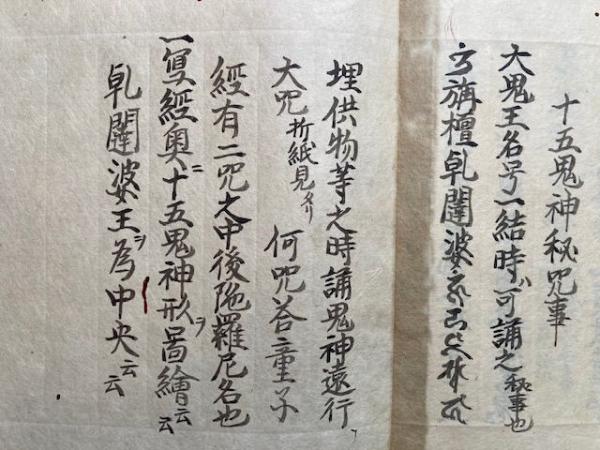 十五鬼神秘咒事
大鬼王名号一結時ハ可誦之秘事也
旃檀乹闥婆
埋供物等之時誦鬼神遠行
大咒折紙見タリ 何咒荅童子
經有二咒之中後陁羅尼名也
一冩經奥ニ十五鬼神形ヲ圖繪云云
乹闥婆王ヲ為中央云云